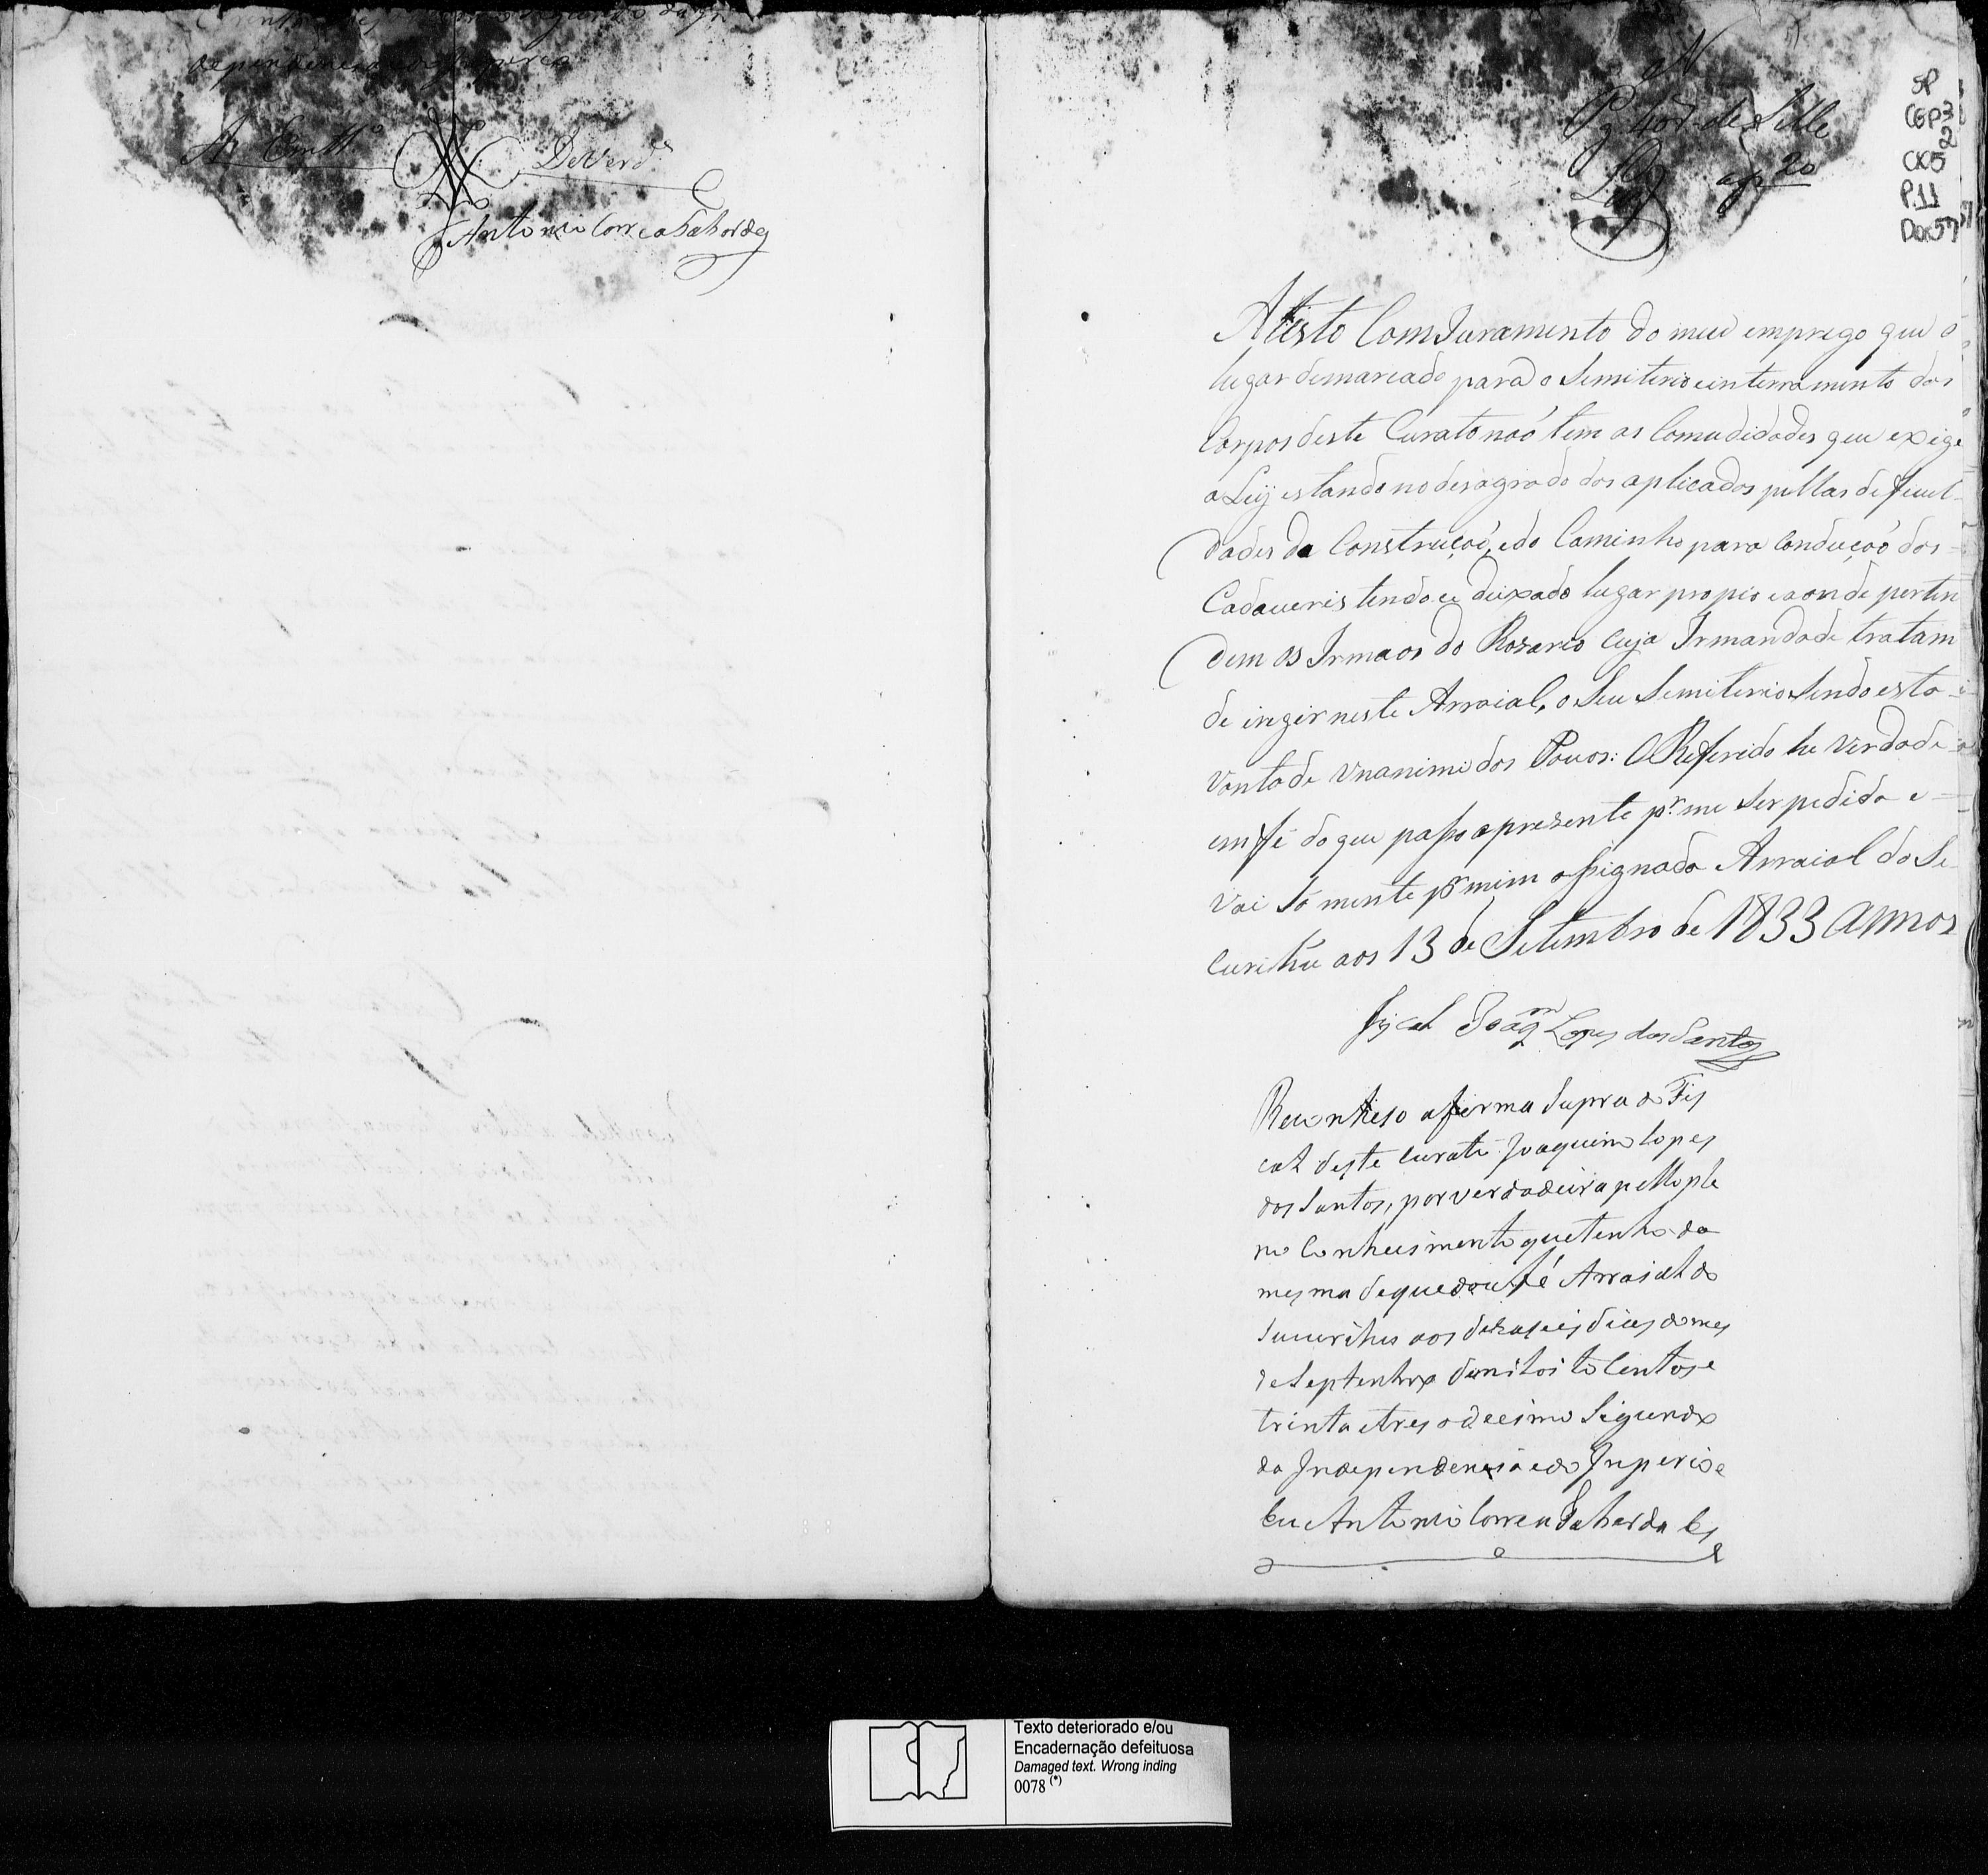 dependencia
Em tt.º DeVerd.e
Antonio Correa Laherda
N
Pg 40 r.s de Sello
20
SP
CGP3
2
CX5
P.11
Doc57
Atesto Com Juramento do meu emprego que o
lugar demarcado para o Semiterio e interramento dos
Corpos deste Curato naõ tem as Comudidades que exige
a Leÿ estando no desagrado dos aplicados pellas deficul-
dades da Construçaõ, e do Caminho para Conduçaõ dos
Cadaueris tendo ce deixado lugar propio e aonde perten
dem os Irmaos do Rozario cuja Irmandade tratam
de iregir neste Arraial, o Seu Semiterio Sendo esta
Vontade Unanime dos Povos: O Referido he Verdade
em fé do que paſso a prezente p.r me Ser pedida e
Vai Só mente p.r mim aſsignada Arraial do Su
curihu aos 13 de Setembro de 1833 annos
Fiscal Joaq.m Lopes dos Santos
Reconheso a firma Supra do Fis
cal deste Curato Joaquim Lopes
dos Santos, por verdadeira pello ple
no Conhecimento que tenho da
mesma de que dou fé Arraial do
Sucurihu aos dezaseis dias do mes
de Septenbro de mil oito Centos e
trinta e tres o decimo Segundo
da Independencia e do Inperio e
Eu Antonio Correa Laherda Es
Texto deteriorado e/ou
Encadernação defeituosa
Damaged text. Wrong inding
0078 (*)